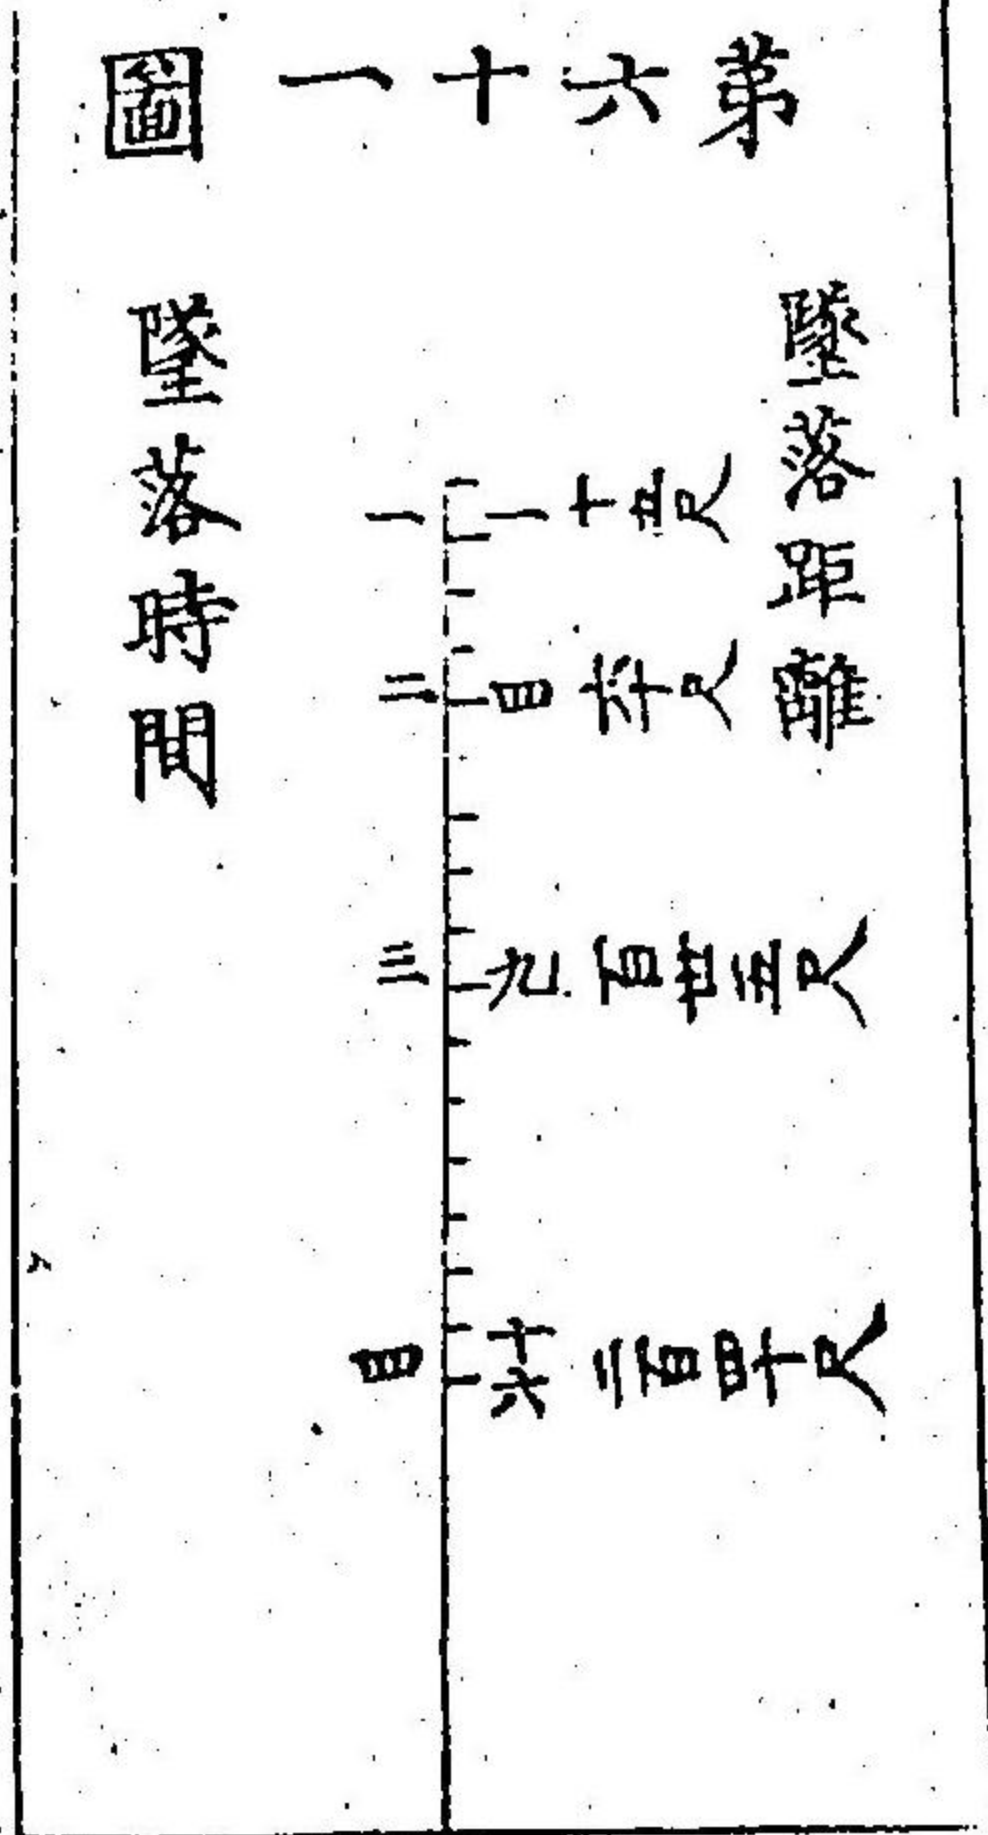 苐六十一圖
墜落距離
墜落時間
一 一 十五尺
二 四 六十尺
三 九 百卅五尺
四 十六 二百四十尺